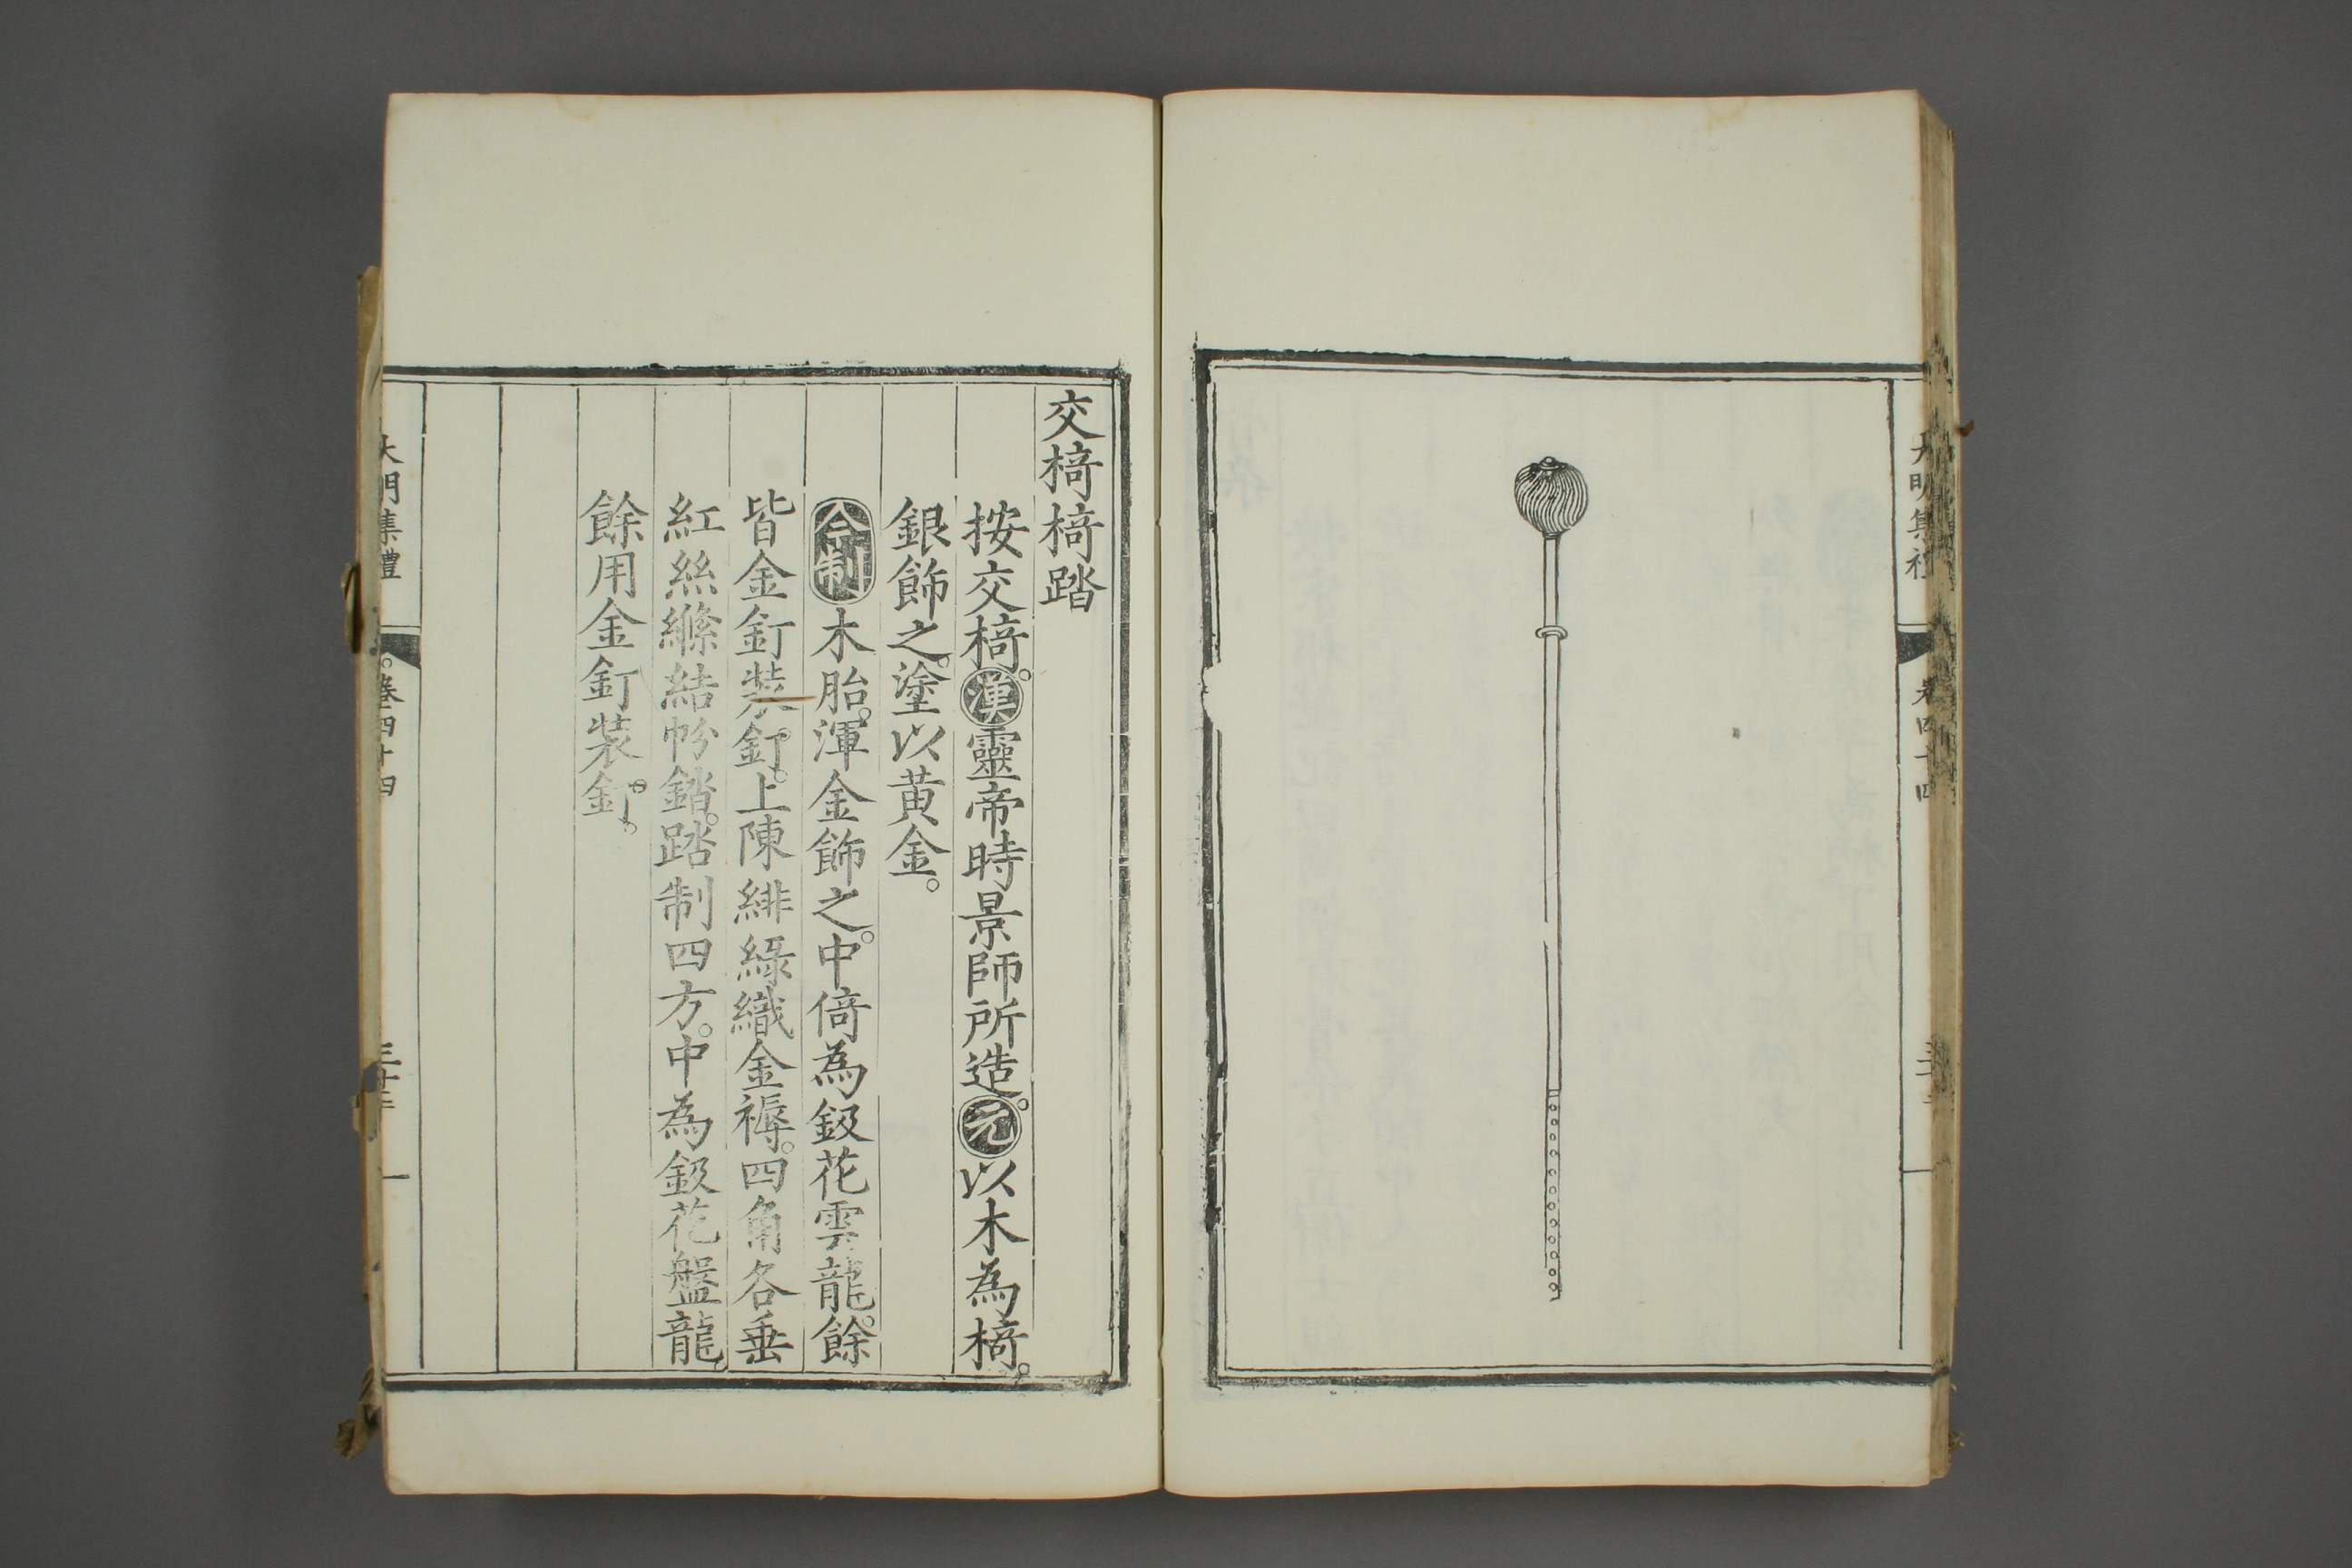 大明集禮 卷四十四
交椅椅踏
按交椅。漢靈帝時景師所造。元以木為椅。
銀飾之。塗以黃金。
今制木胎。渾金飾之。中倚為鈒花雲龍。餘
皆金釘裝釘。上陳緋綠織金褥。四角各垂
紅絲絛結帉錔。踏制四方。中為鈒花盤龍
餘用金釘裝釘。
大明集禮 卷四十四 三十二